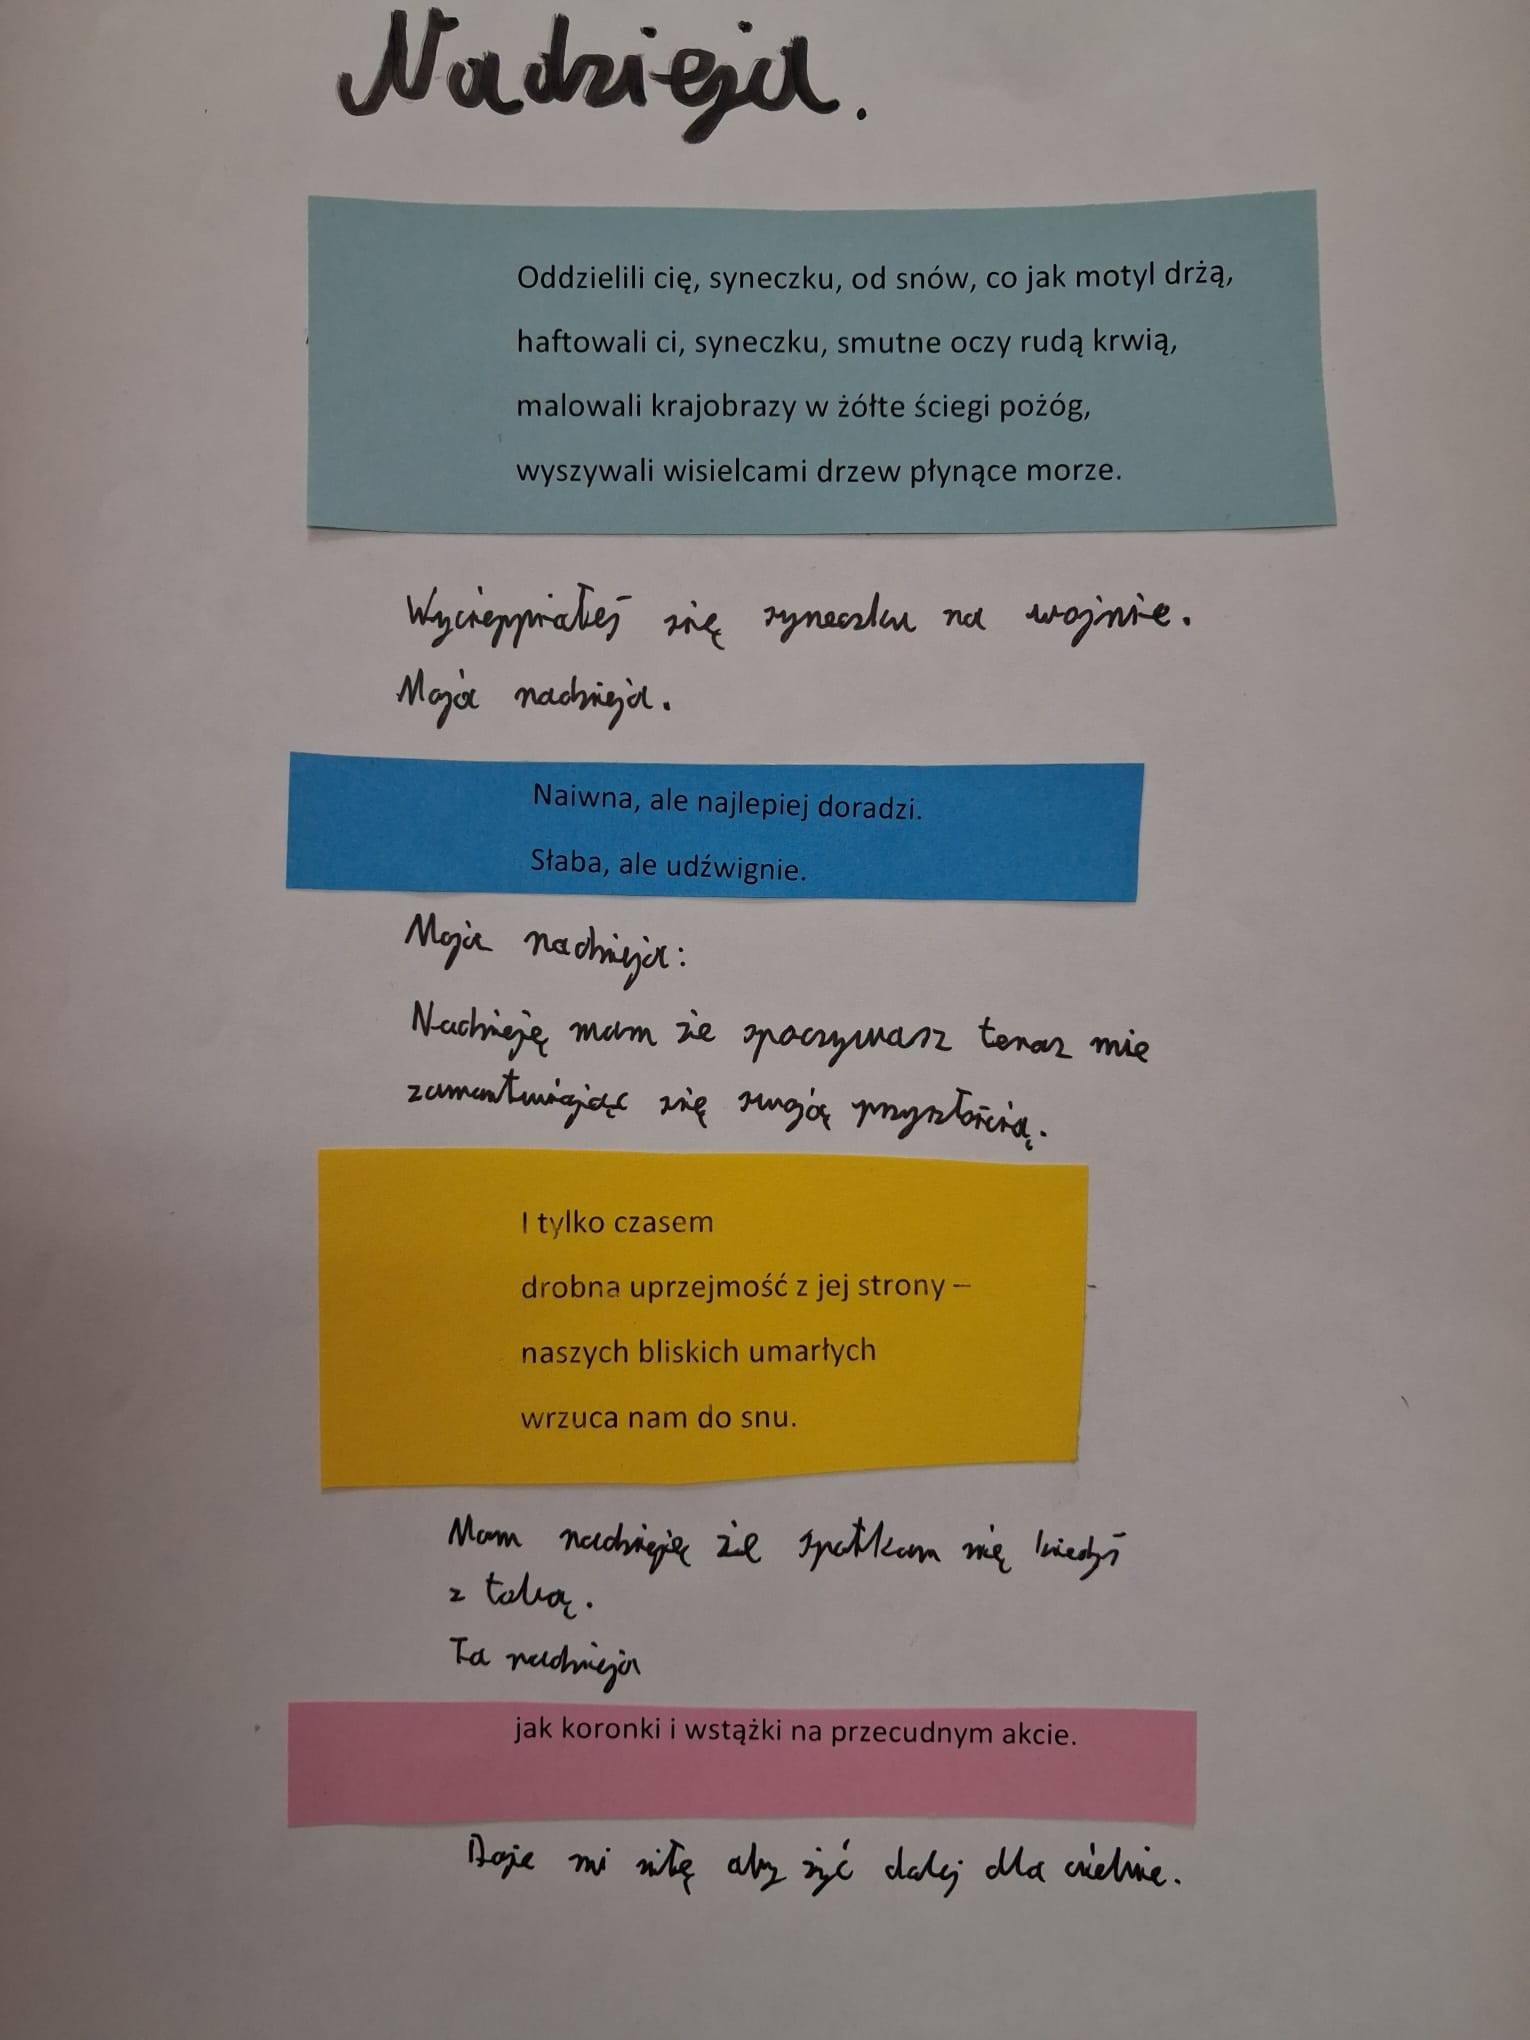 Nadzieja.
Oddzielili cię, syneczku, od snów, co jak motyl drżą,
haftowali ci, syneczku, smutne oczy rudą krwią,
malowali krajobrazy w żółte ściegi pożóg,
wyszywali wisielcami drzew płynące morze.
Wycierppiałeś się syneczku na wojnie.
Moja nadzieja.
Naiwna, ale najlepiej doradzi.
Słaba, ale udźwignie.
Moja nadzieja:
Nadzieję mam że spoczywasz teraz nie
zamartwiając się swoją przyszłością.
I tylko czasem
drobna uprzejmość z jej strony –
naszych bliskich umarłych
wrzuca nam do snu.
Mam nadzieję że spotkam się kiedyś
z tobą.
Ta nadzieja
jak koronki i wstążki na przecudnym akcie.
Daje mi siłę aby żyć dalej dla ciebie.